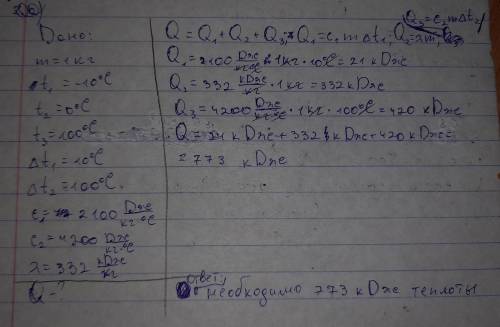 Дано:
m = 1 кг
t₁ = -10°C
t₂ = 0°C
t₃ = 100°C
Δt₁ = 10°C
Δt₂ = 100°C
c₁ = 2100 Дж/кг·°C
c₂ = 4200 Дж/кг·°C
λ = 332 кДж/кг
Q - ?
Q = Q₁ + Q₂ + Q₃; Q₁ = c₁ m Δt₁; Q₂ = λm; Q₃ = c₂ m Δt₂
Q₁ = 2100 Дж/кг·°C · 1 кг · 10°C = 21 кДж
Q₂ = 332 кДж/кг · 1 кг = 332 кДж
Q₃ = 4200 Дж/кг·°C · 1 кг · 100°C = 420 кДж
Q = 21 кДж + 332 кДж + 420 кДж =
= 773 кДж
ответ: необходимо 773 кДж теплоты